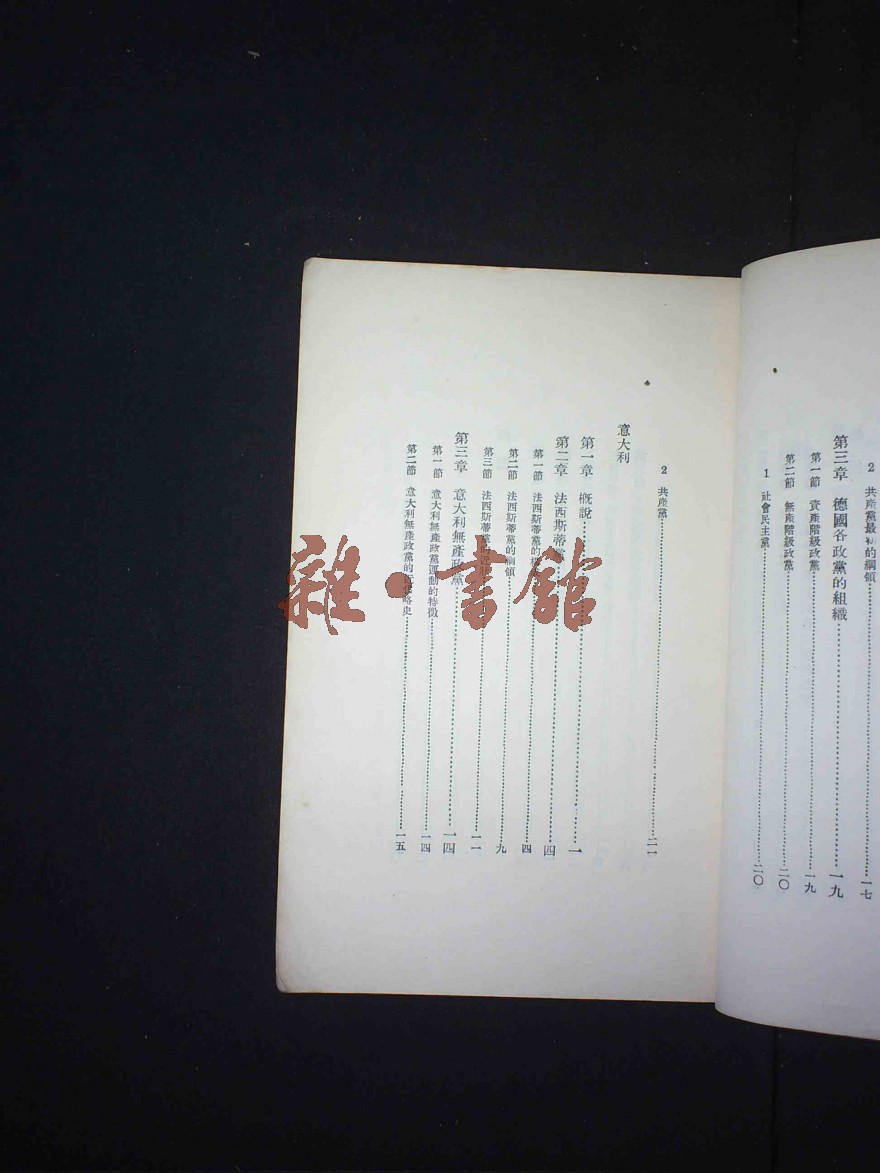 2 共產黨最新的綱領……一七
第三章 德國各政黨的組織……一九
第一節 資產階級政黨……一九
第二節 無產階級政黨……二〇
1 社會民主黨……二〇
2 共產黨……二一
意大利
第一章 概說……一
第二章 法西斯蒂黨……四
第一節 法西斯蒂黨的……四
第二節 法西斯蒂黨的綱領……九
第三節 法西斯蒂黨的……一一
第三章 意大利無產政黨……一四
第一節 意大利無產政黨運動的特徵……一四
第二節 意大利無產政黨的略史……一五
雜·書館